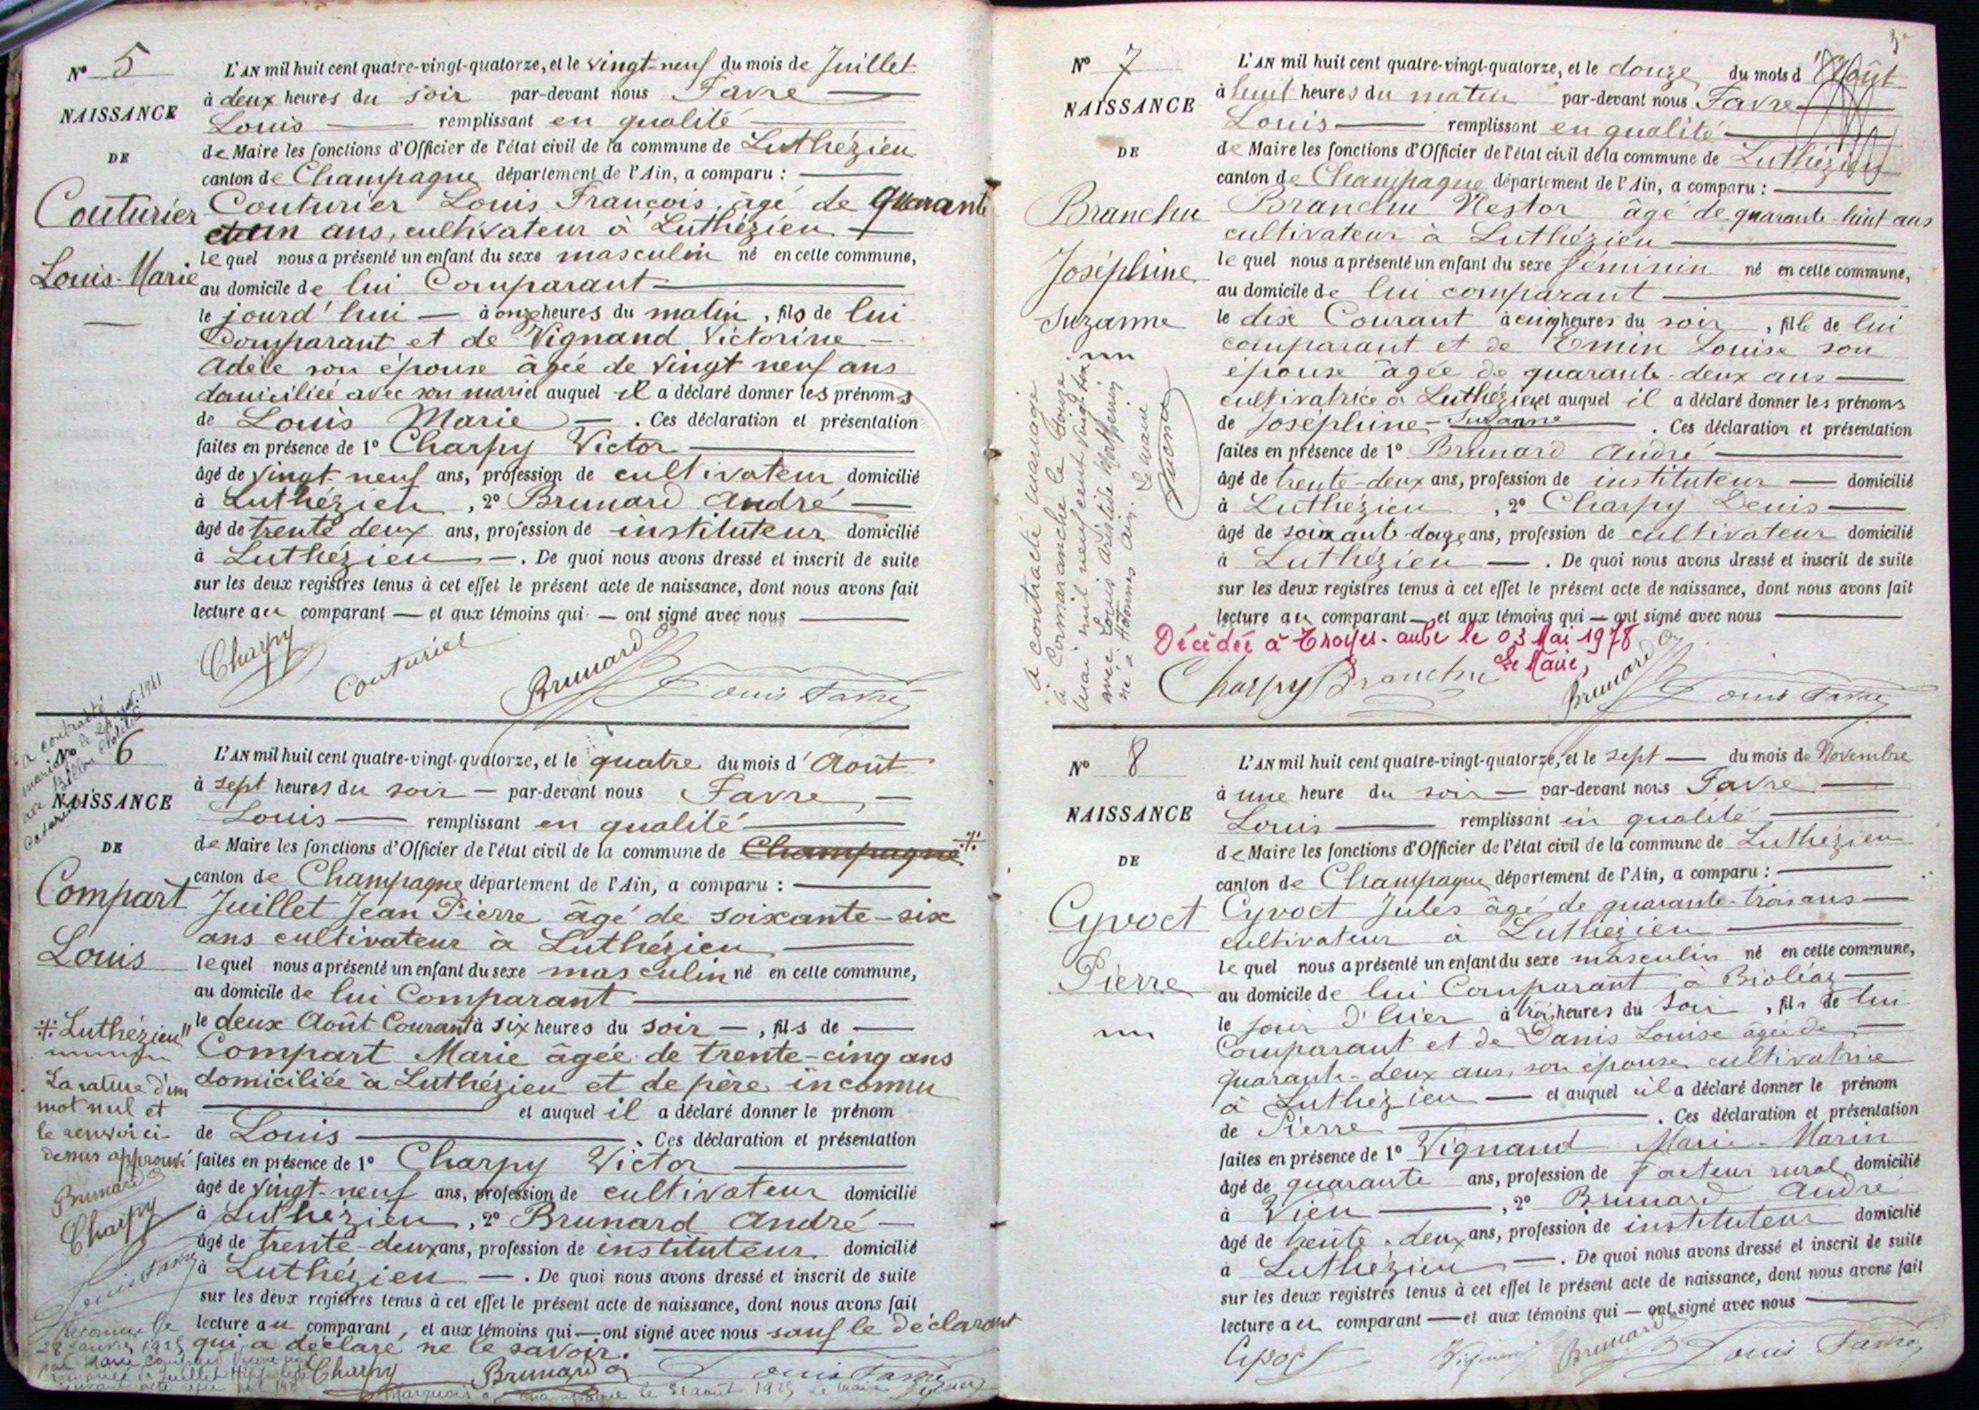 N° 5
NAISSANCE
DE
Couturier
Louis-Marie
L'AN mil huit cent quatre-vingt-quatorze, et le vingt-neuf du mois de Juillet
à deux heures du soir par-devant nous Favre
Louis remplissant en qualité
de Maire les fonctions d'Officier de l'état civil de la commune de Luthézieu
canton de Champagne département de l'Ain, a comparu :
Couturier Louis François, âgé de quarante
et un ans, cultivateur à Luthézieu
lequel nous a présenté un enfant du sexe masculin né en cette commune,
au domicile de lui Comparant
le jourd'hui — à onze heures du matin, fils de lui
Comparant et de Vignand Victorine
Adèle son épouse âgée de vingt neuf ans
domiciliée avec son mari et auquel il a déclaré donner les prénoms
de Louis Marie — . Ces déclaration et présentation
faites en présence de 1° Charpy Victor
âgé de vingt-neuf ans, profession de cultivateur domicilié
à Luthézieu, 2° Brunard André
âgé de trente deux ans, profession de instituteur domicilié
à Luthézieu — . De quoi nous avons dressé et inscrit de suite
sur les deux registres tenus à cet effet le présent acte de naissance, dont nous avons fait
lecture au comparant — et aux témoins qui — ont signé avec nous
Charpy Couturier Brunard Louis Favre
a contracté
N° 6
NAISSANCE
DE
Compart
Louis
Luthézieu
La rature d'un
mot nul et
le renvoi ci-
dessus approuvé
Brunard
Charpy
Louis Favre
L'AN mil huit cent quatre-vingt-quatorze, et le quatre du mois d'Août
à sept heures du soir — par-devant nous Favre
Louis remplissant en qualité
de Maire les fonctions d'Officier de l'état civil de la commune de Champagne
canton de Champagne département de l'Ain, a comparu :
Juillet Jean Pierre âgé de soixante-six
ans cultivateur à Luthézieu
lequel nous a présenté un enfant du sexe masculin né en cette commune,
au domicile de lui Comparant
le deux Août Courant à six heures du soir — , fils de
Compart Marie âgée de trente-cinq ans
domiciliée à Luthézieu et de père inconnu
et auquel il a déclaré donner le prénom
de Louis . Ces déclaration et présentation
faites en présence de 1° Charpy Victor
âgé de vingt-neuf ans, profession de cultivateur domicilié
à Luthézieu, 2° Brunard André
âgé de trente-deux ans, profession de instituteur domicilié
à Luthézieu — . De quoi nous avons dressé et inscrit de suite
sur les deux registres tenus à cet effet le présent acte de naissance, dont nous avons fait
lecture au comparant, et aux témoins qui — ont signé avec nous sauf le déclarant
qui a déclaré ne le savoir.
Charpy Brunard Louis Favre
N° 7
NAISSANCE
DE
Branchu
Joséphine
Suzanne
a contracté mariage
à Cormaranche le douze
mai mil neuf cent vingt
avec Louis Aristide
né à Hotonnes Ain. Le maire
L'AN mil huit cent quatre-vingt-quatorze, et le douze du mois d'Août
à huit heures du matin par-devant nous Favre
Louis remplissant en qualité
de Maire les fonctions d'Officier de l'état civil de la commune de Luthézieu
canton de Champagne département de l'Ain, a comparu :
Branchu Nestor âgé de quarante-huit ans
cultivateur à Luthézieu
lequel nous a présenté un enfant du sexe féminin né en cette commune,
au domicile de lui comparant
le dix Courant à cinq heures du soir, fille de lui
comparant et de Emin Louise son
épouse âgée de quarante-deux ans
cultivatrice à Luthézieu et auquel il a déclaré donner les prénoms
de Joséphine-Suzanne . Ces déclaration et présentation
faites en présence de 1° Brunard André
âgé de trente-deux ans, profession de instituteur — domicilié
à Luthézieu, 2° Charpy Denis
âgé de soixante-douze ans, profession de cultivateur domicilié
à Luthézieu — . De quoi nous avons dressé et inscrit de suite
sur les deux registres tenus à cet effet le présent acte de naissance, dont nous avons fait
lecture au comparant — et aux témoins qui — ont signé avec nous
Décédée à Troyes-aube le 03 Mai 1978
Le Maire,
Charpy Branchu Brunard Louis Favre
N° 8
NAISSANCE
DE
Cyvoct
Pierre
L'AN mil huit cent quatre-vingt-quatorze, et le sept — du mois de Novembre
à une heure du soir — par-devant nous Favre
Louis remplissant en qualité
de Maire les fonctions d'Officier de l'état civil de la commune de Luthézieu
canton de Champagne département de l'Ain, a comparu :
Cyvoct Jules âgé de quarante-trois ans
cultivateur à Luthézieu
lequel nous a présenté un enfant du sexe masculin né en cette commune,
au domicile de lui Comparant à Bioléaz
le jour d'hier à trois heures du soir, fils de lui
Comparant et de Danis Louise âgée de
quarante-deux ans, son épouse cultivatrice
à Luthézieu — et auquel il a déclaré donner le prénom
de Pierre . Ces déclaration et présentation
faites en présence de 1° Vignand Marie-Marin
âgé de quarante ans, profession de facteur rural domicilié
à Vieu, 2° Brunard André
âgé de trente-deux ans, profession de instituteur domicilié
à Luthézieu — . De quoi nous avons dressé et inscrit de suite
sur les deux registres tenus à cet effet le présent acte de naissance, dont nous avons fait
lecture au comparant — et aux témoins qui — ont signé avec nous
Cyvoct Vignand Brunard Louis Favre